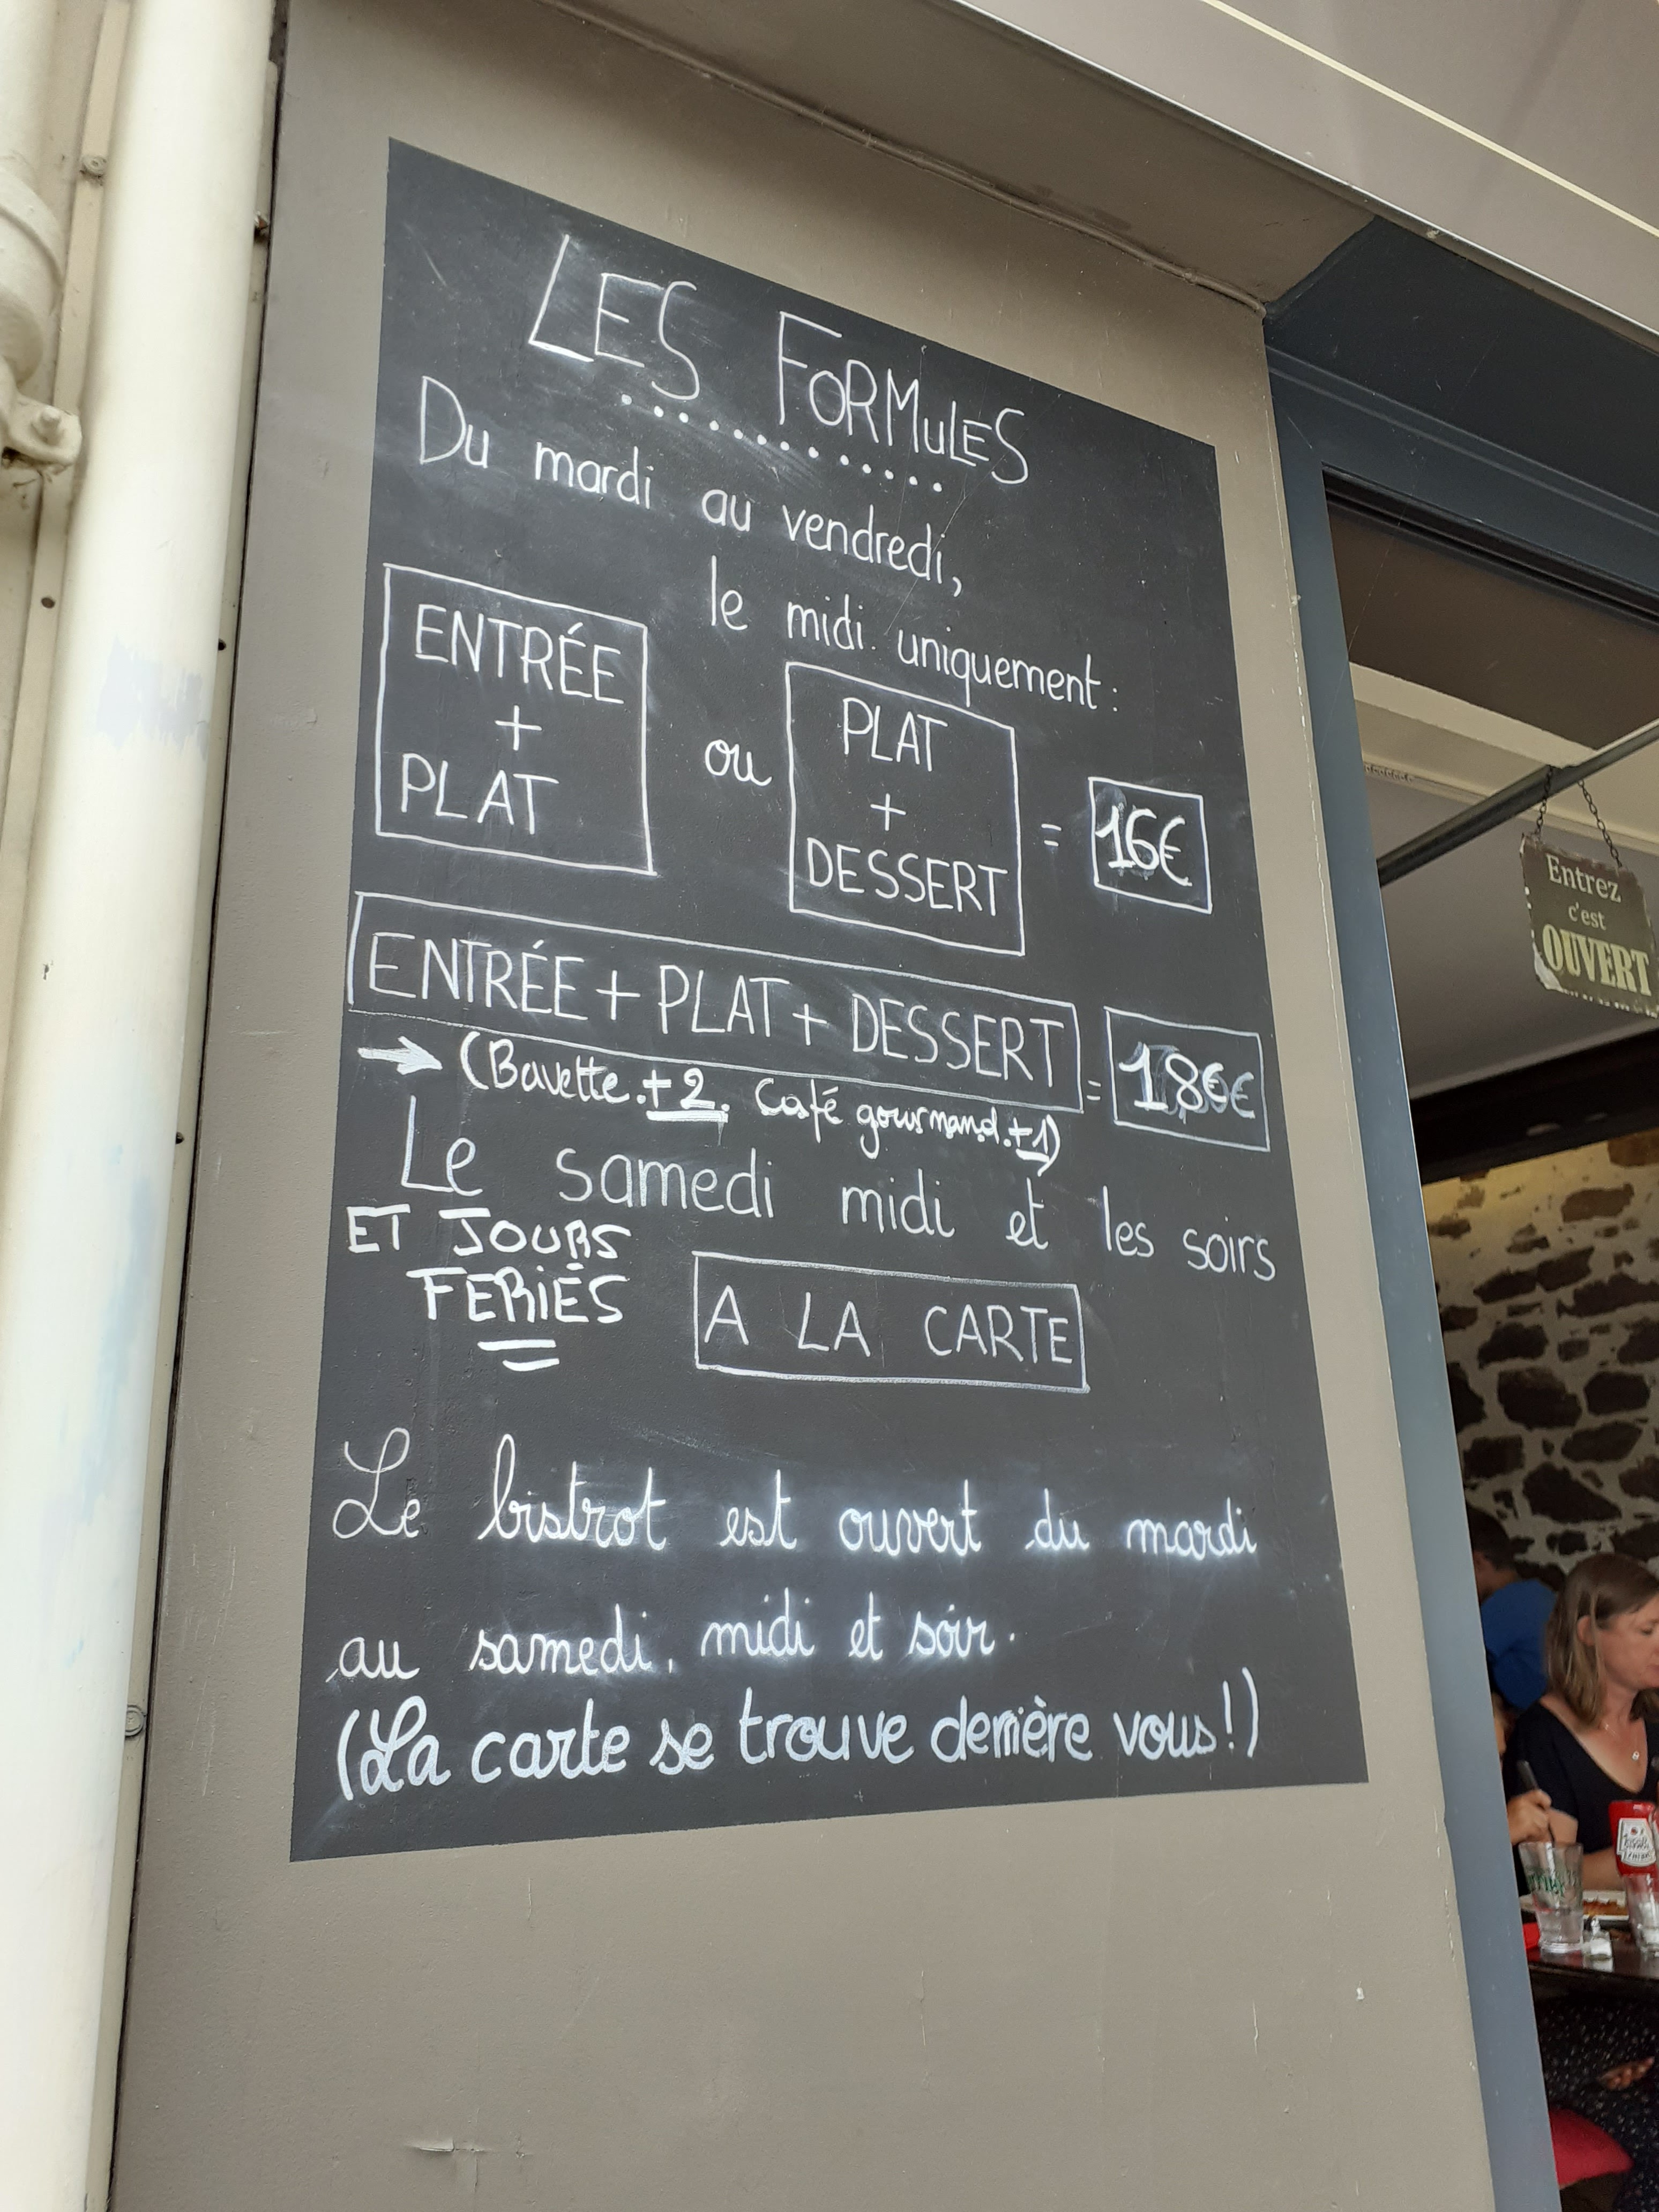 LES FORMULES
Du mardi au vendredi,
le midi uniquement :
ENTRÉE
+
PLAT
ou
PLAT
+
DESSERT
= 16€
ENTRÉE + PLAT + DESSERT = 18€
→ (Bavette +2. Café gourmand +1)
Le samedi midi et les soirs
ET JOURS
FERIÉS
A LA CARTE
Le bistrot est ouvert du mardi
au samedi, midi et soir.
(La carte se trouve derrière vous!)
Entrez
c'est
OUVERT